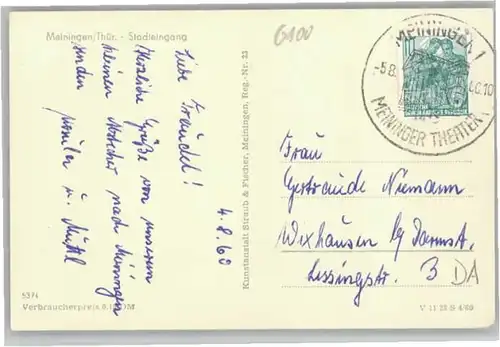 Meiningen/Thür. - Stadteingang
G100
4.8.60
Liebe
Herzliche Grüße von unserem
kleinen Abstecher nach Meiningen
senden
u.
Kunstanstalt Straub & Fischer, Meiningen, Reg.-Nr. 23
MEININGEN 1
-5.8.
MEININGER THEATER
Frau
Gertraude Niemann
Wixhausen b/ Darmst.
Lessingstr. 3 DA
5374
Verbraucherpreis 0.12 DM
V 11 28 G 4/60